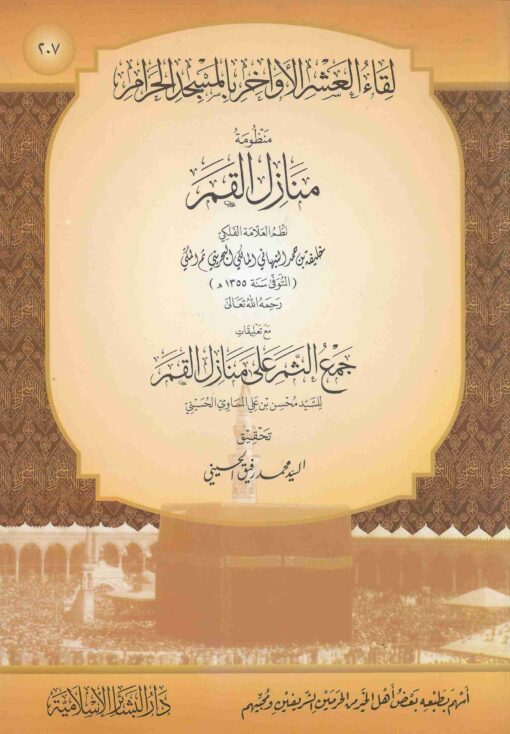 ٢٠٧
لِقَاءُ العَشْرِ الأَوَاخِرِ بِالمَسْجِدِ الحَرَامِ
مَنْظُومَةُ
مَنَازِلِ القَمَرِ
نَظْمُ العَلَّامَةِ الفَلَكِيِّ
خليفة بن حمد النبهاني المالكي البحريني ثم المكي
(المُتَوَفَّى سَنَةَ ١٣٥٥ هـ)
رَحِمَهُ اللهُ تَعَالَىٰ
مَعَ تَعْلِيقَاتِ
جَمْعُ الثَّمَرِ عَلَى مَنَازِلِ القَمَرِ
لِلسَّيِّدِ مُحْسِنِ بْنِ عَلِي المُسَاوِي الحُسَيْنِي
تَحْقِيق
السيد محمد رفيق الحسيني
أَسْهَمَ بِطَبْعِهِ بَعْضُ أَهْلِ الخَيْرِ مِنَ الحَرَمَيْنِ الشَّرِيفَيْنِ وَمُحِبِّيهِم
دَارُ البَشَائِرِ الإِسْلَامِيَّة